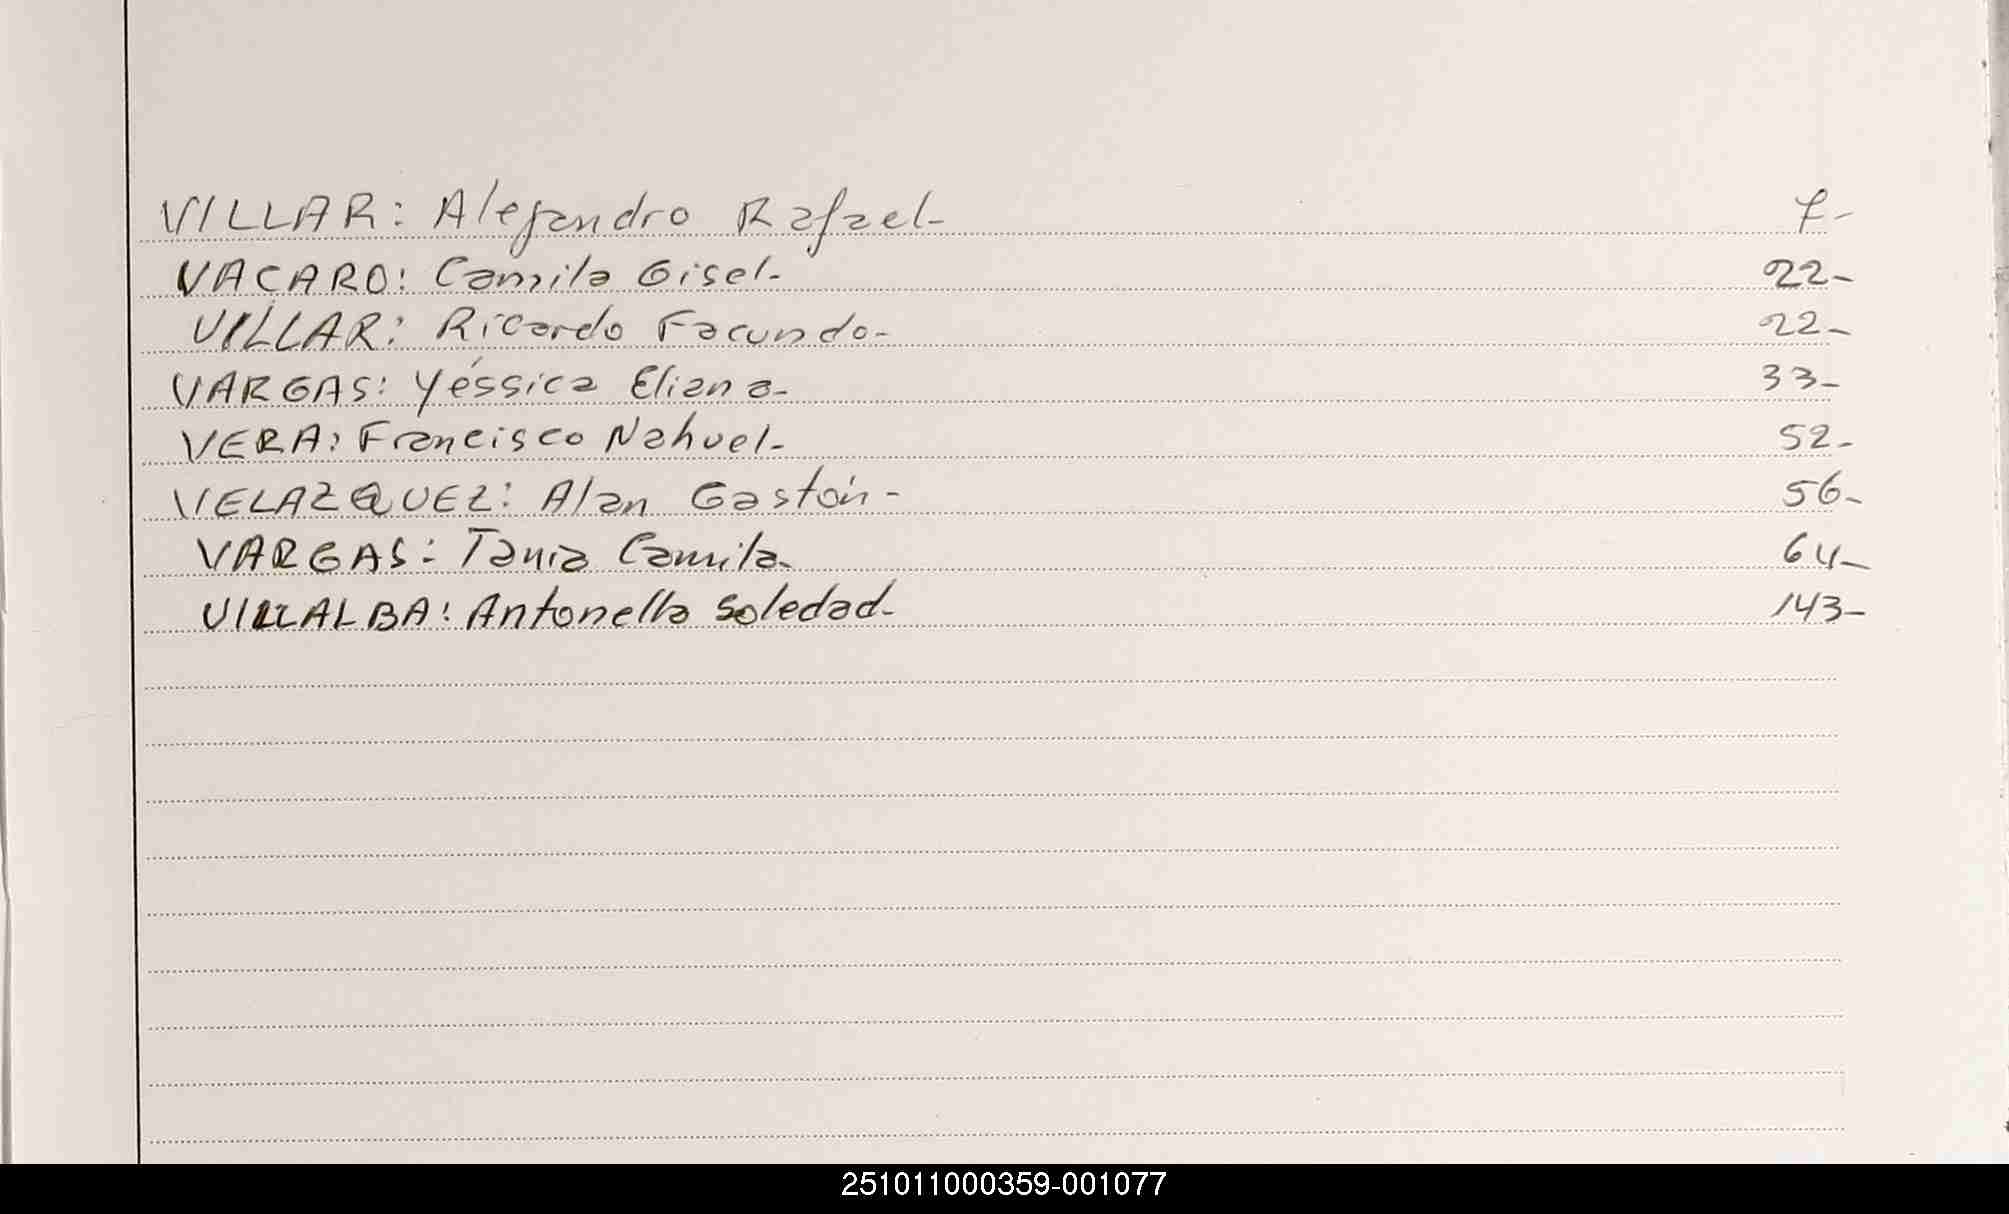 VILLAR: Alejandro Rafael- 7-
VACARO: Camila Gisel- 22-
VILLAR: Ricardo Facundo- 22-
VARGAS: Yéssica Eliana- 33-
VERA: Francisco Nahuel- 52-
VELAZQUEZ: Alan Gastón- 56-
VARGAS: Tania Camila- 64-
VILLALBA: Antonella Soledad- 143-
251011000359-001077